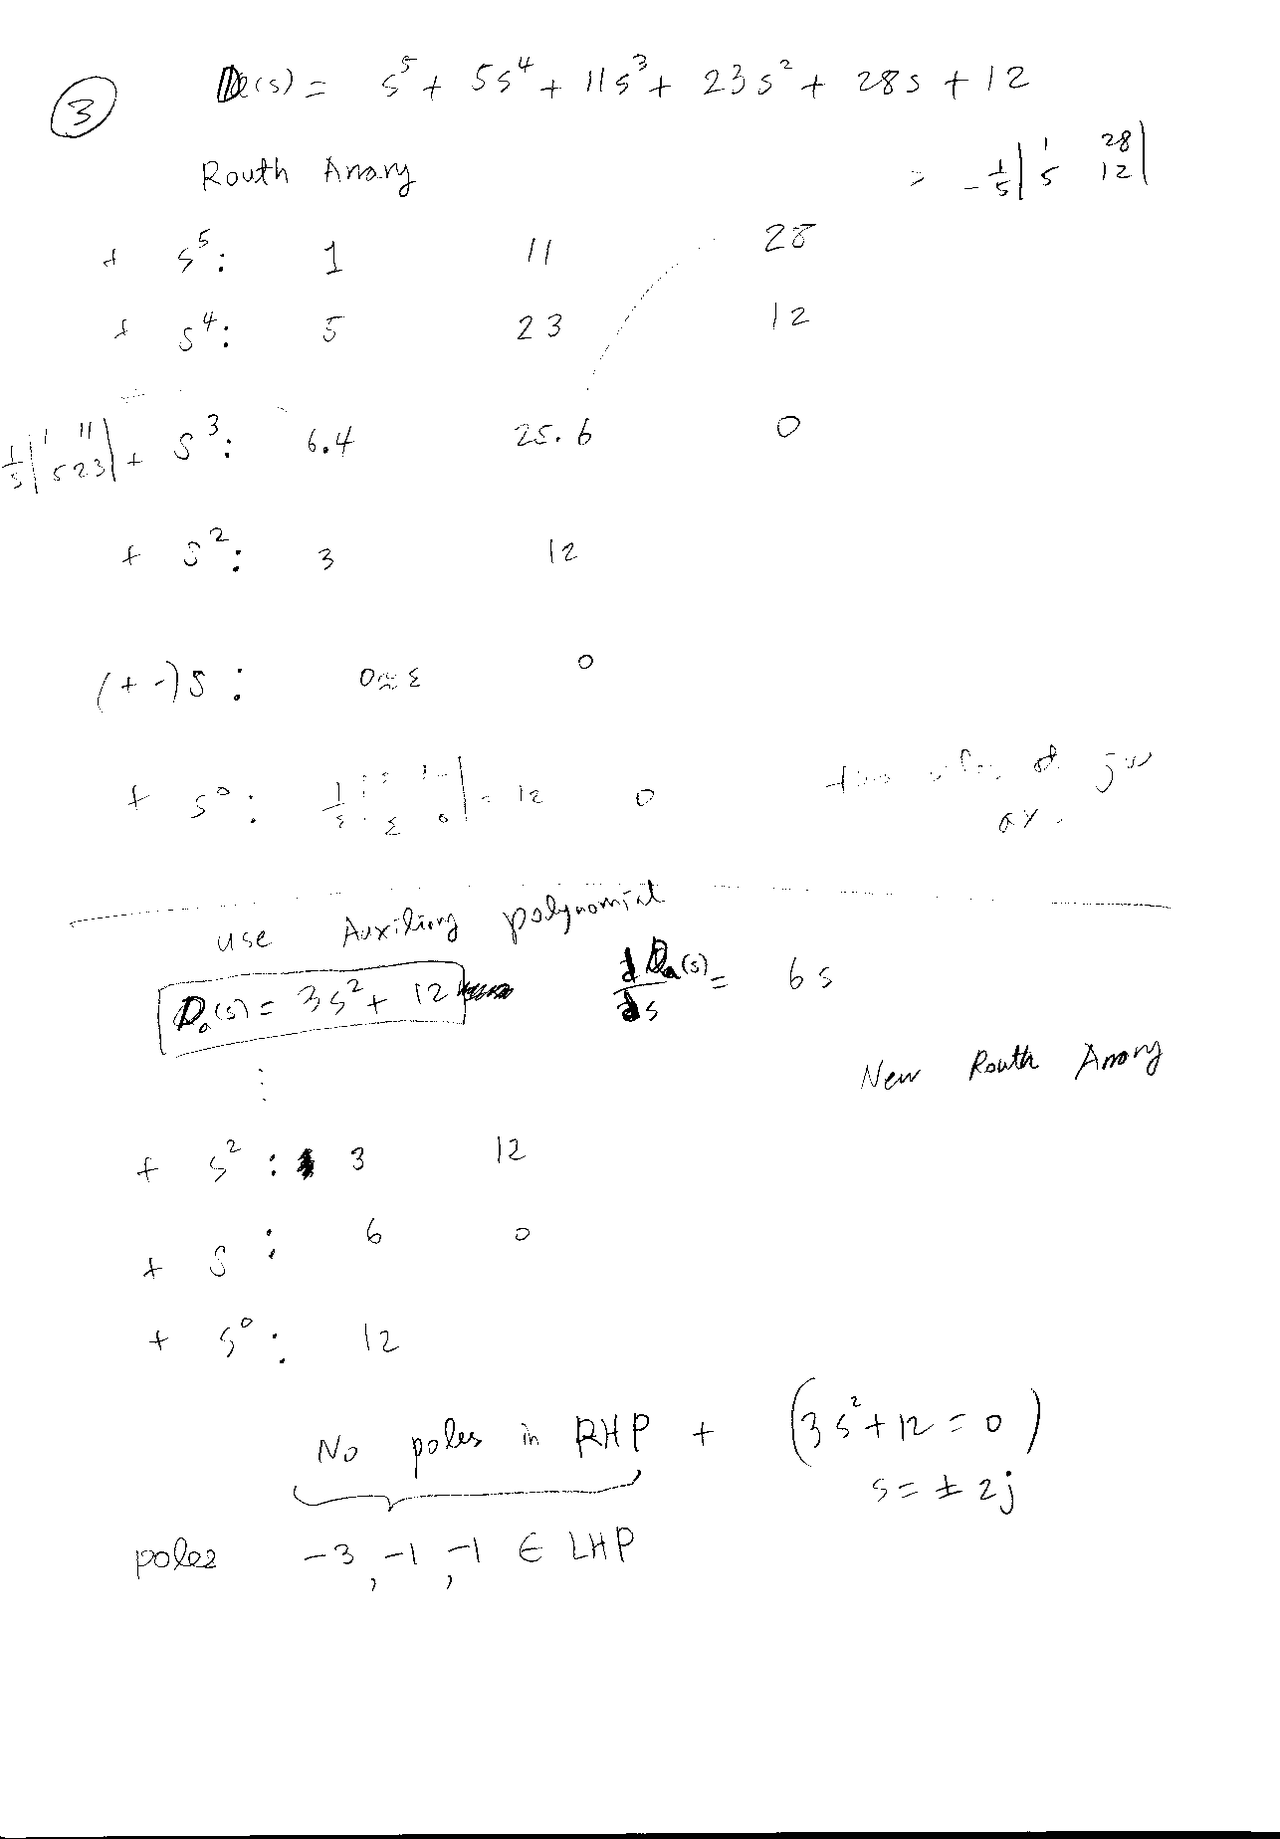 ③ D(s) = s⁵ + 5s⁴ + 11s³ + 23s² + 28s + 12
Routh Array
= -1/5 | 1 28 |
| 5 12 |
+ s⁵: 1 11 28
+ s⁴: 5 23 12
1/5 | 1 11 |
| 5 23 | + s³: 6.4 25.6 0
+ s²: 3 12
(+ -) s: 0 ≈ ε 0
+ s⁰: = 12 0
jω
ax.
use Auxiliary polynomial
Dₐ(s) = 3s² + 12
dDₐ(s)/ds = 6s
New Routh Array
⋮
+ s²: 3 12
+ s: 6 0
+ s⁰: 12
No poles in RHP + (3s² + 12 = 0)
s = ± 2j
poles -3, -1, -1 ∈ LHP